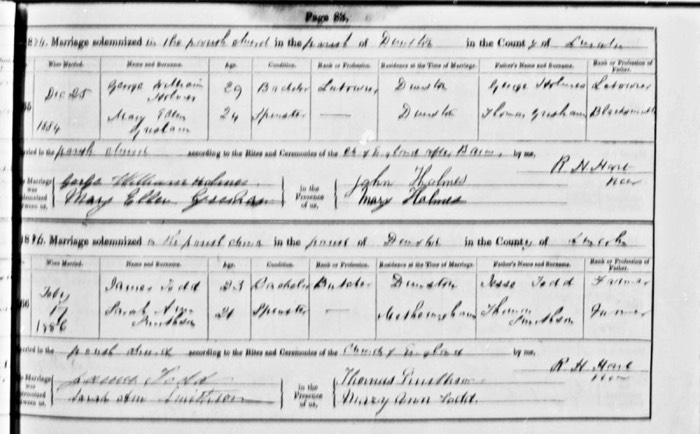 Page 83.
Marriage solemnized in the parish church in the parish of Dunston in the County of Lincoln
When Married. Name and Surname. Age. Condition. Rank or Profession. Residence at the Time of Marriage. Father's Name and Surname. Rank or Profession of Father.
Dec 25 George William Holmes 29 Bachelor Labourer Dunston George Holmes Labourer
1884 Mary Ellen Gresham 24 Spinster — Dunston Thomas Gresham Blacksmith
Married in the parish church according to the Rites and Ceremonies of the after Banns by me,
R H Hare
George William Holmes in the Presence of us, John Holmes
Mary Ellen Gresham Mary Holmes
Marriage solemnized in the parish church in the parish of Dunston in the County of Lincoln
When Married. Name and Surname. Age. Condition. Rank or Profession. Residence at the Time of Marriage. Father's Name and Surname. Rank or Profession of Father.
Feby 17 James Todd 23 Bachelor Butcher Dunston Jesse Todd Farmer
1886 Sarah Ann Smithson 21 Spinster — Metheringham Thomas Smithson Farmer
Married in the parish church according to the Rites and Ceremonies of the Church of England by me,
R H Hare
James Todd in the Presence of us, Thomas Smithson
Sarah Ann Smithson Mary Ann Todd.